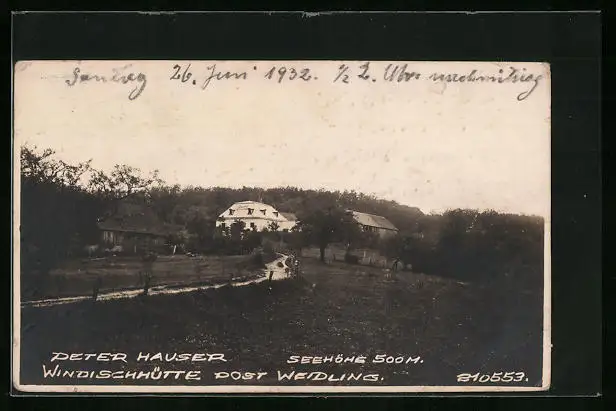 Sonntag 26. Juni 1932. ½ 2. Uhr nachmittag
PETER HAUSER SEEHÖHE 500M.
WINDISCHHÜTTE POST WEIDLING. 210553.